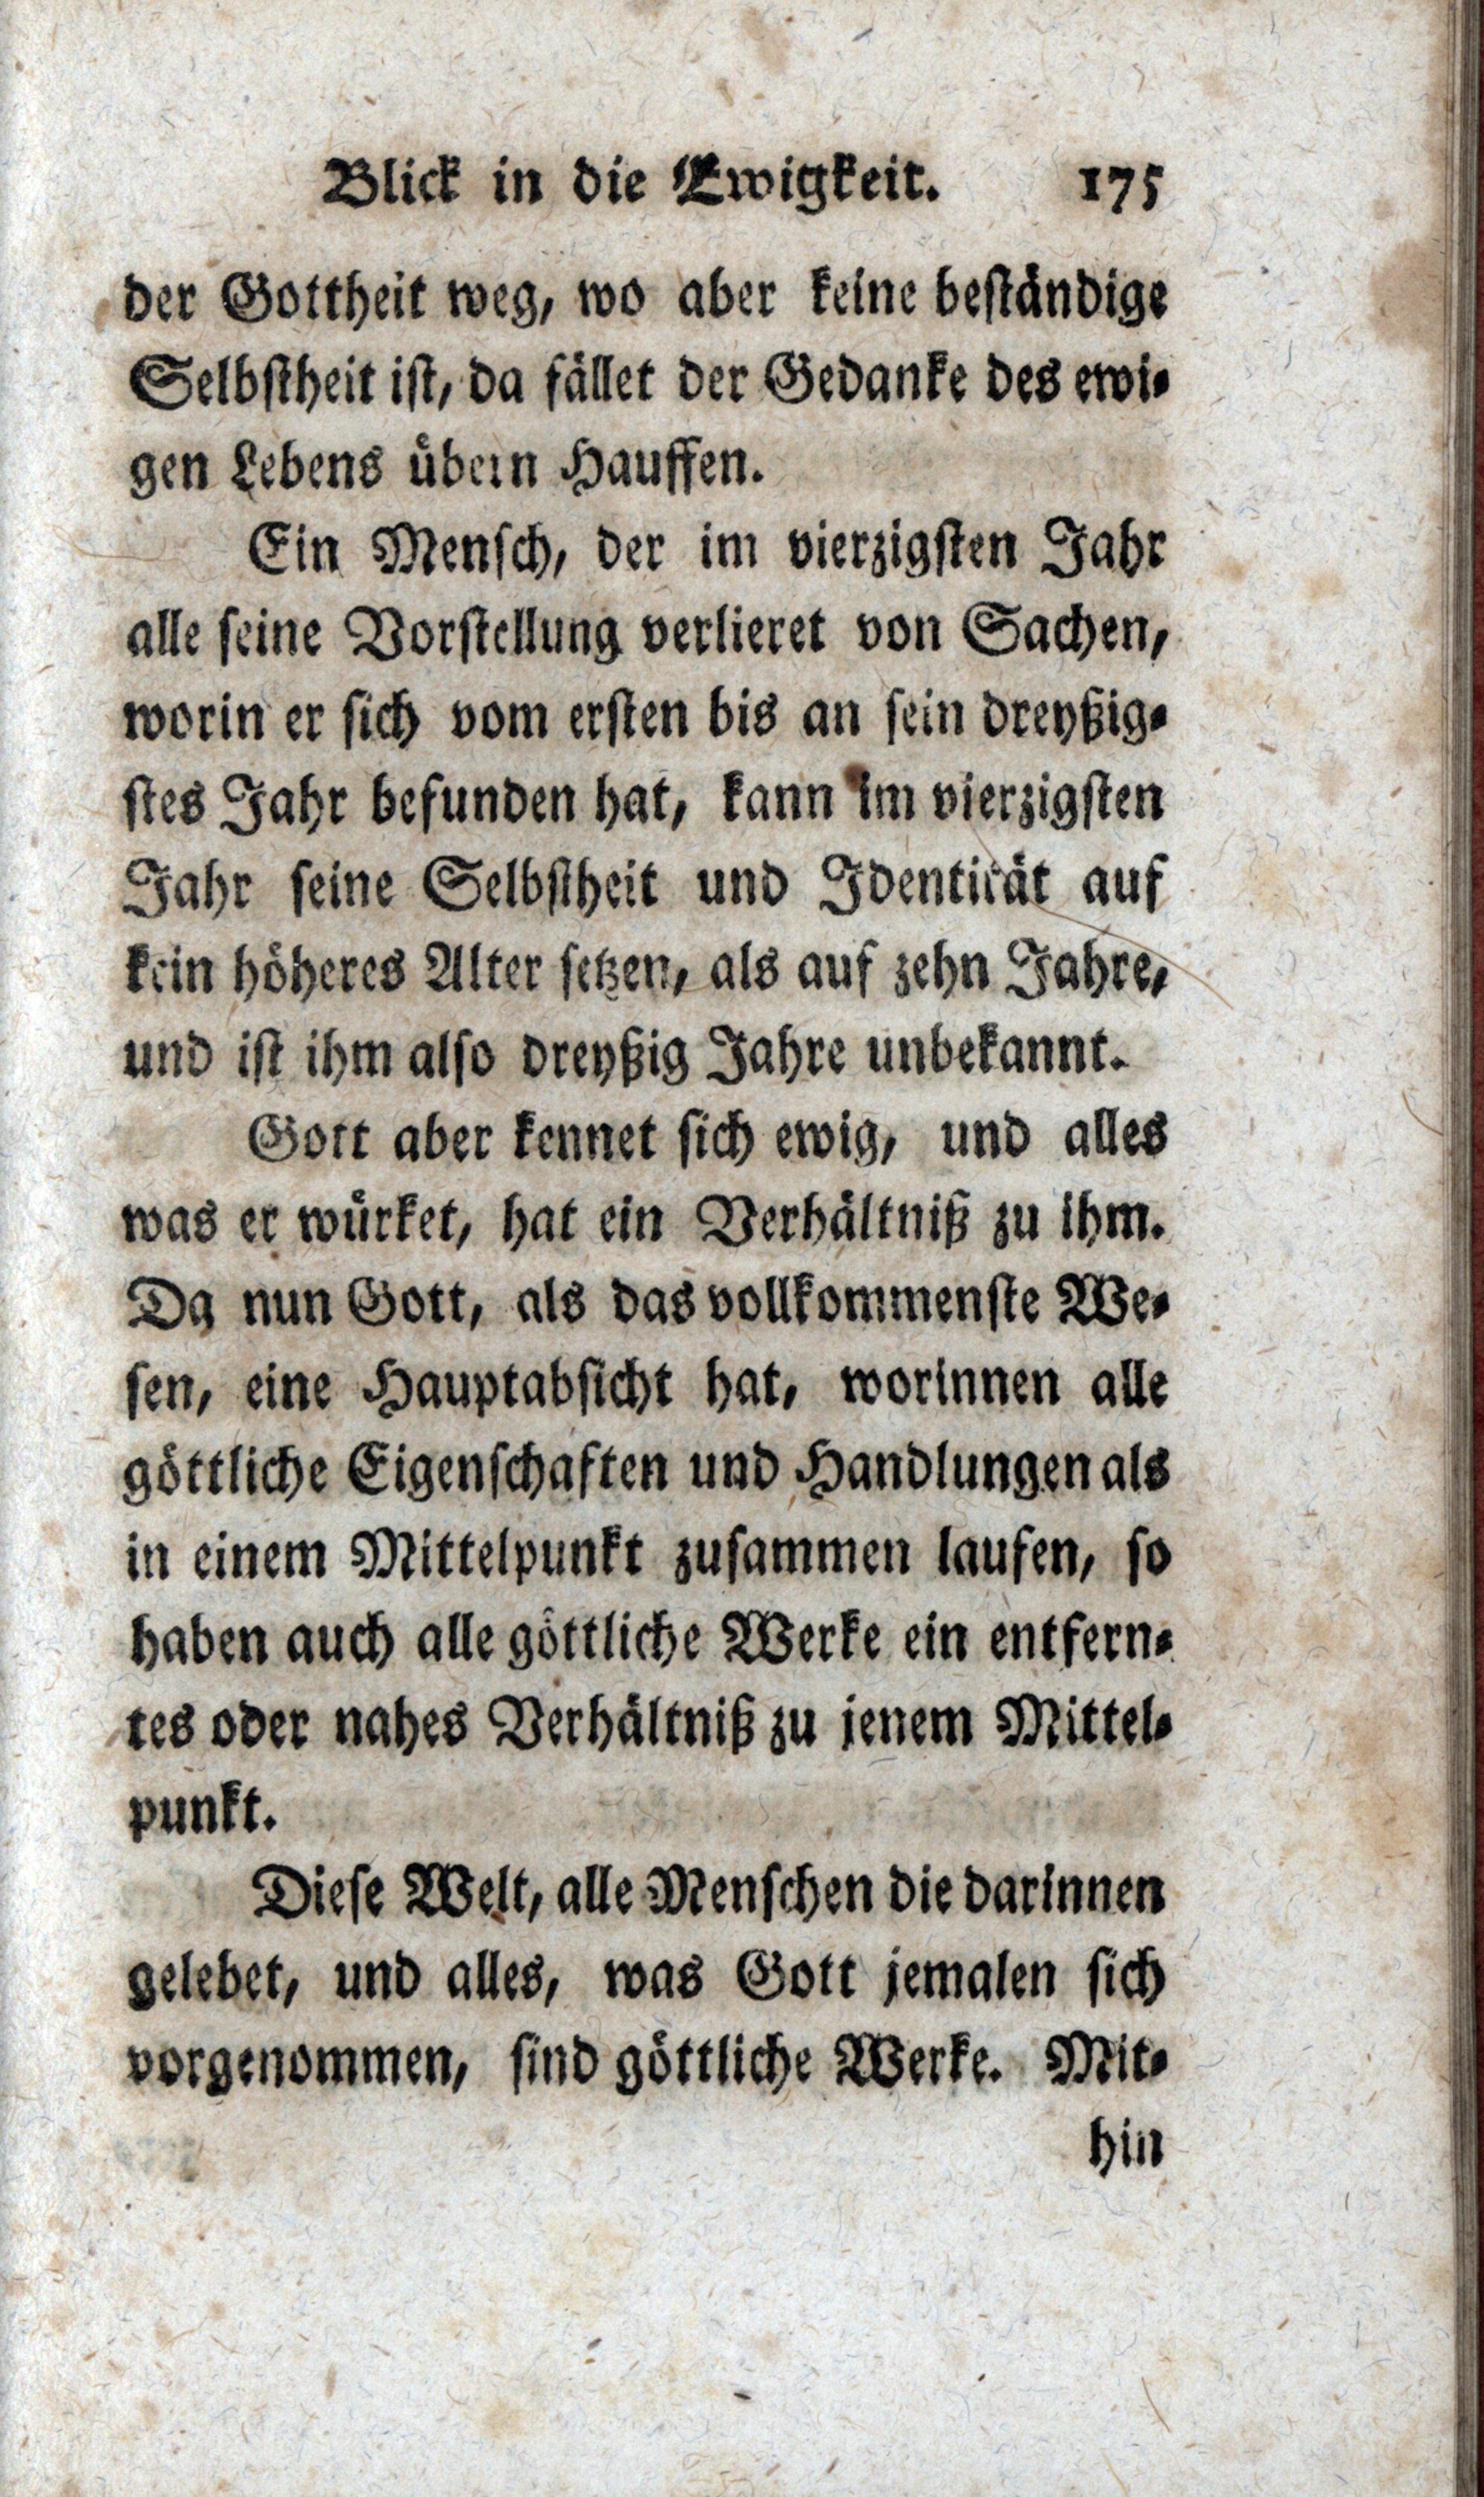 Blick in die Ewigkeit. 175
der Gottheit weg, wo aber keine beständige
Selbstheit ist, da fället der Gedanke des ewi-
gen Lebens übern Hauffen.
Ein Mensch, der im vierzigsten Jahr
alle seine Vorstellung verlieret von Sachen,
worin er sich vom ersten bis an sein dreyßig-
stes Jahr befunden hat, kann im vierzigsten
Jahr seine Selbstheit und Identität auf
kein höheres Alter setzen, als auf zehn Jahre,
und ist ihm also dreyßig Jahre unbekannt.
Gott aber kennet sich ewig, und alles
was er würket, hat ein Verhältniß zu ihm.
Da nun Gott, als das vollkommenste We-
sen, eine Hauptabsicht hat, worinnen alle
göttliche Eigenschaften und Handlungen als
in einem Mittelpunkt zusammen laufen, so
haben auch alle göttliche Werke ein entfern-
tes oder nahes Verhältniß zu jenem Mittel-
punkt.
Diese Welt, alle Menschen die darinnen
gelebet, und alles, was Gott jemalen sich
vorgenommen, sind göttliche Werke. Mit-
hin